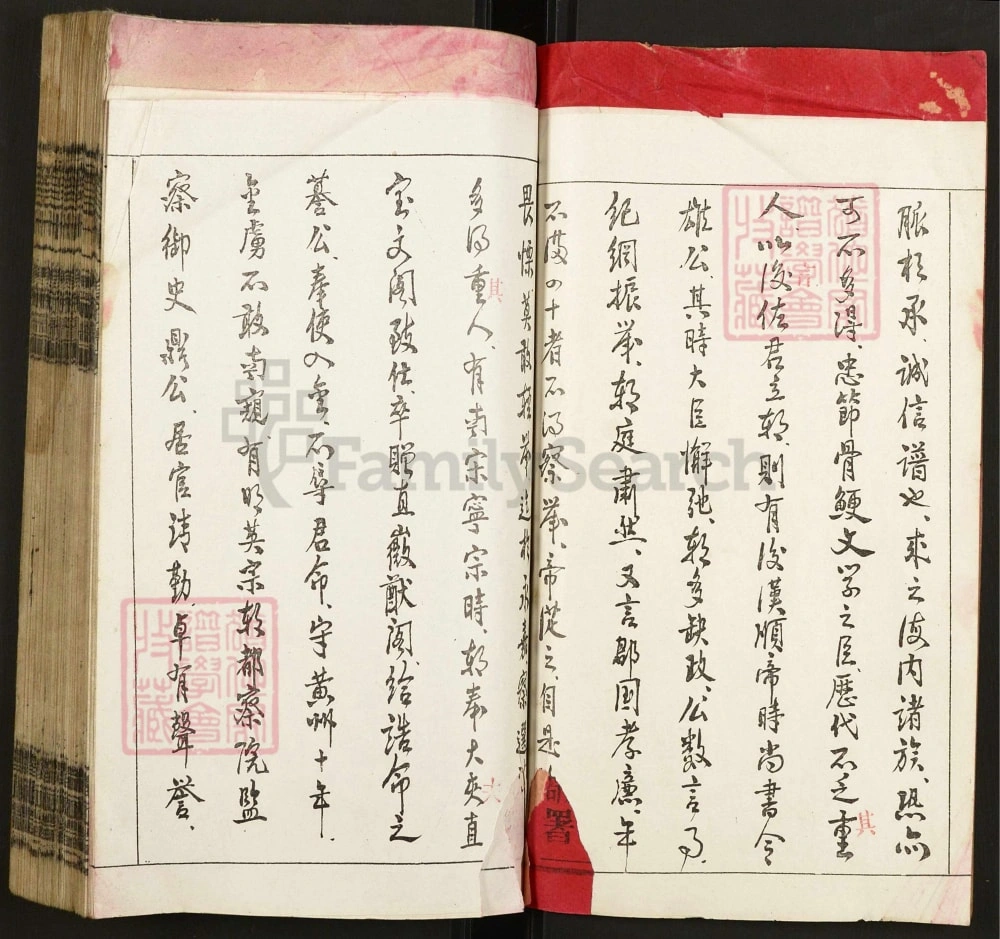 脈相承、誠信譜也、求之海内諸族、恐亦
可不多得、忠節骨鯁文学之臣、歷代不乏重
人、以後佐君立朝、則有後漢順帝時尚書令
雄公、其時大臣懈弛、朝多缺政、公數言事、
紀綱振举、朝庭肅然、又言郡国孝廉、年
不满四十者不得察举、帝從之、自是
畏慄莫敢輕举迨於永嘉察選
多得重人、有南宋寧宗時、朝奉大夾直
宝文阁致仕、卒贈直徽猷阁、给誥命之
䓁公、奉使入金、不辱君命、守黄州十年、
金虜不敢南窺、有明英宗朝都察院監
察御史鼎公、居官清勤、卓有聲誉、
其
其
大
署
FamilySearch